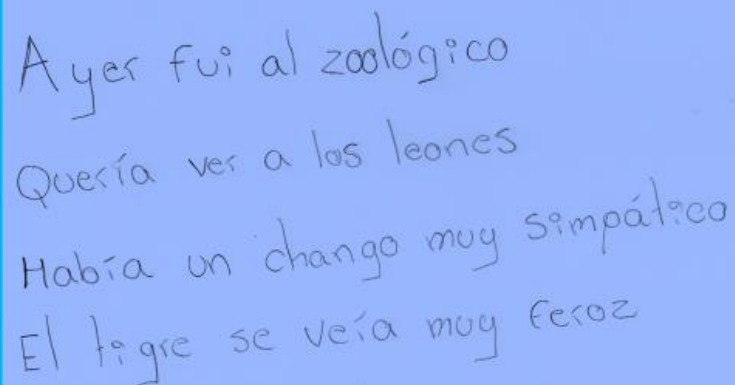 Ayer fui al zoológico
Quería ver a los leones
Había un chango muy simpático
El tigre se veía muy feroz